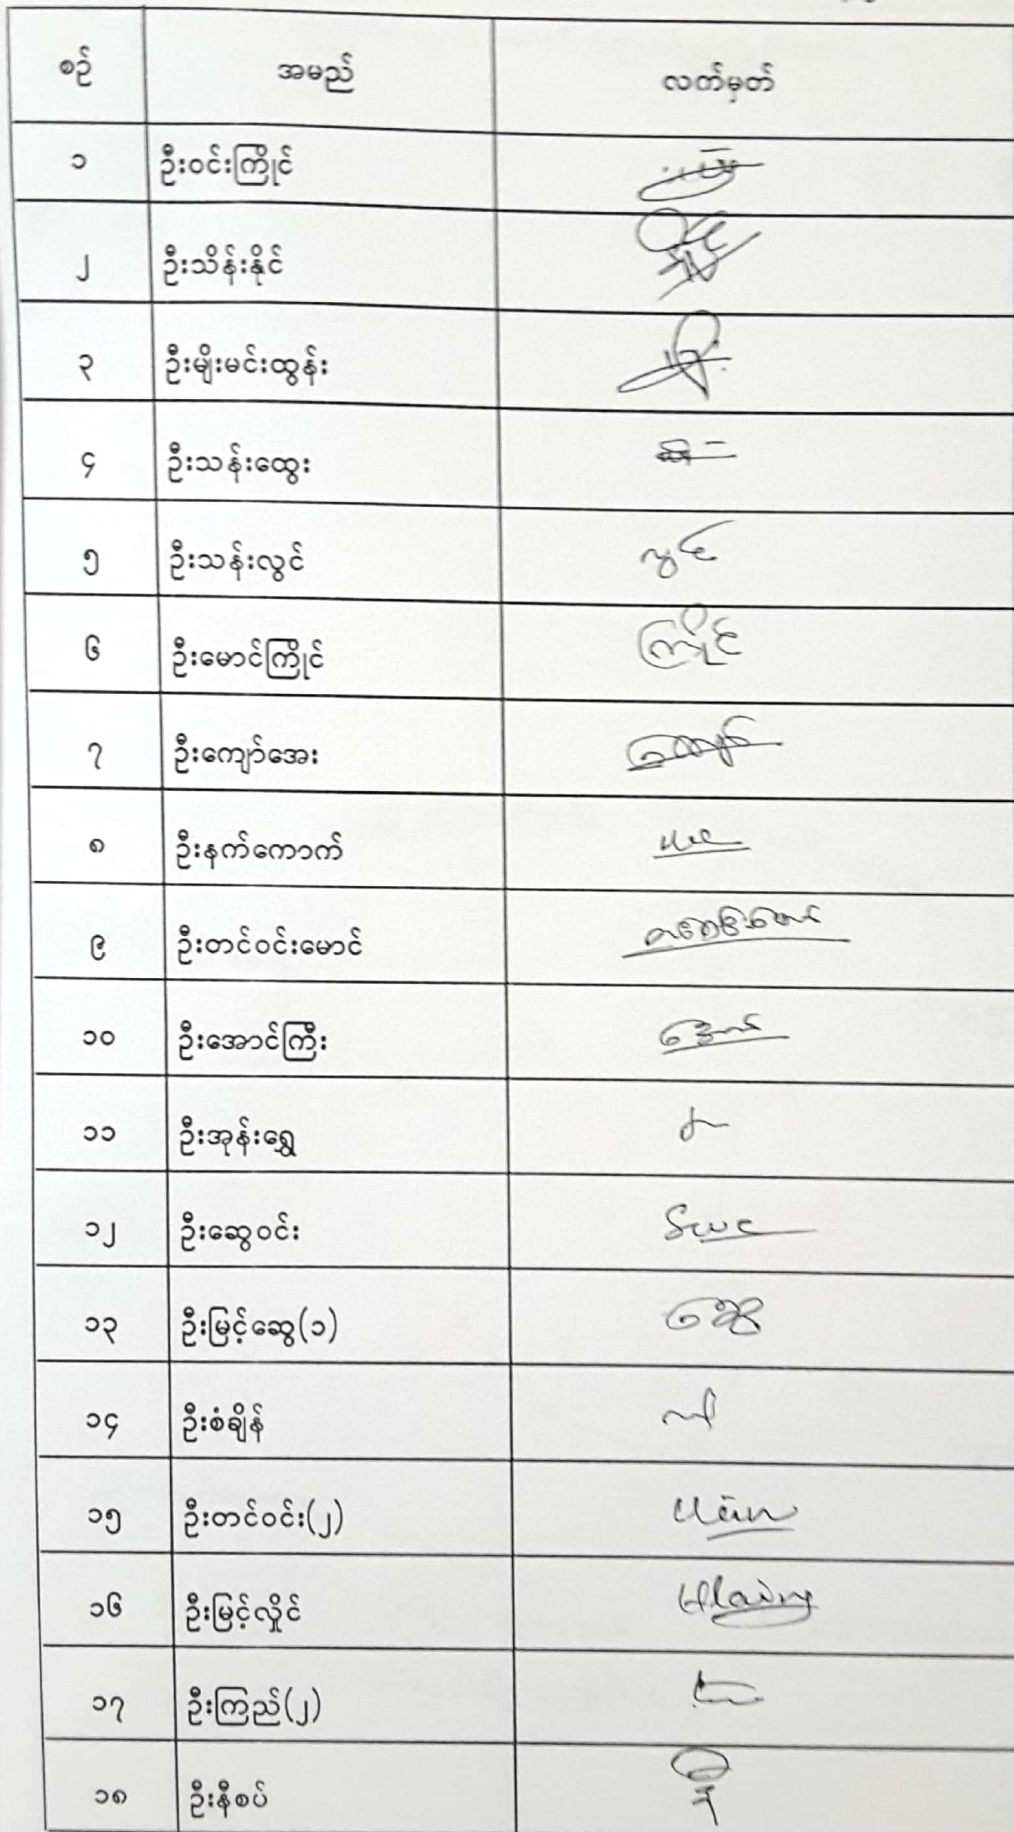 စဉ် အမည် လက်မှတ်
၁ ဦးဝင်းကြိုင်
၂ ဦးသိန်းနိုင်
၃ ဦးမျိုးမင်းထွန်း
၄ ဦးသန်းထွေး
၅ ဦးသန်းလွင် လွင်
၆ ဦးမောင်ကြိုင် ကြိုင်
၇ ဦးကျော်အေး ကျော်
၈ ဦးနက်ကောက်
၉ ဦးတင်ဝင်းမောင်
၁၀ ဦးအောင်ကြီး အောင်
၁၁ ဦးအုန်းရွှေ
၁၂ ဦးဆွေဝင်း
၁၃ ဦးမြင့်ဆွေ(၁) ဆွေ
၁၄ ဦးစံချိန်
၁၅ ဦးတင်ဝင်း(၂)
၁၆ ဦးမြင့်လှိုင် Hlaing
၁၇ ဦးကြည်(၂)
၁၈ ဦးနီစပ်